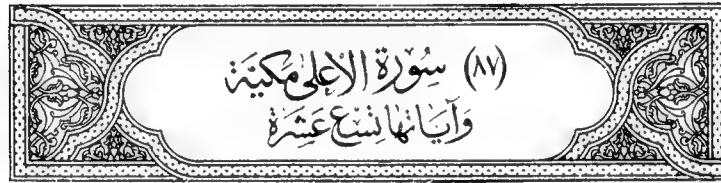 (٨٧) سُورَة الأعلى مَكيَّة
وَآيَاتهَا تِسْعَ عَشَرَة